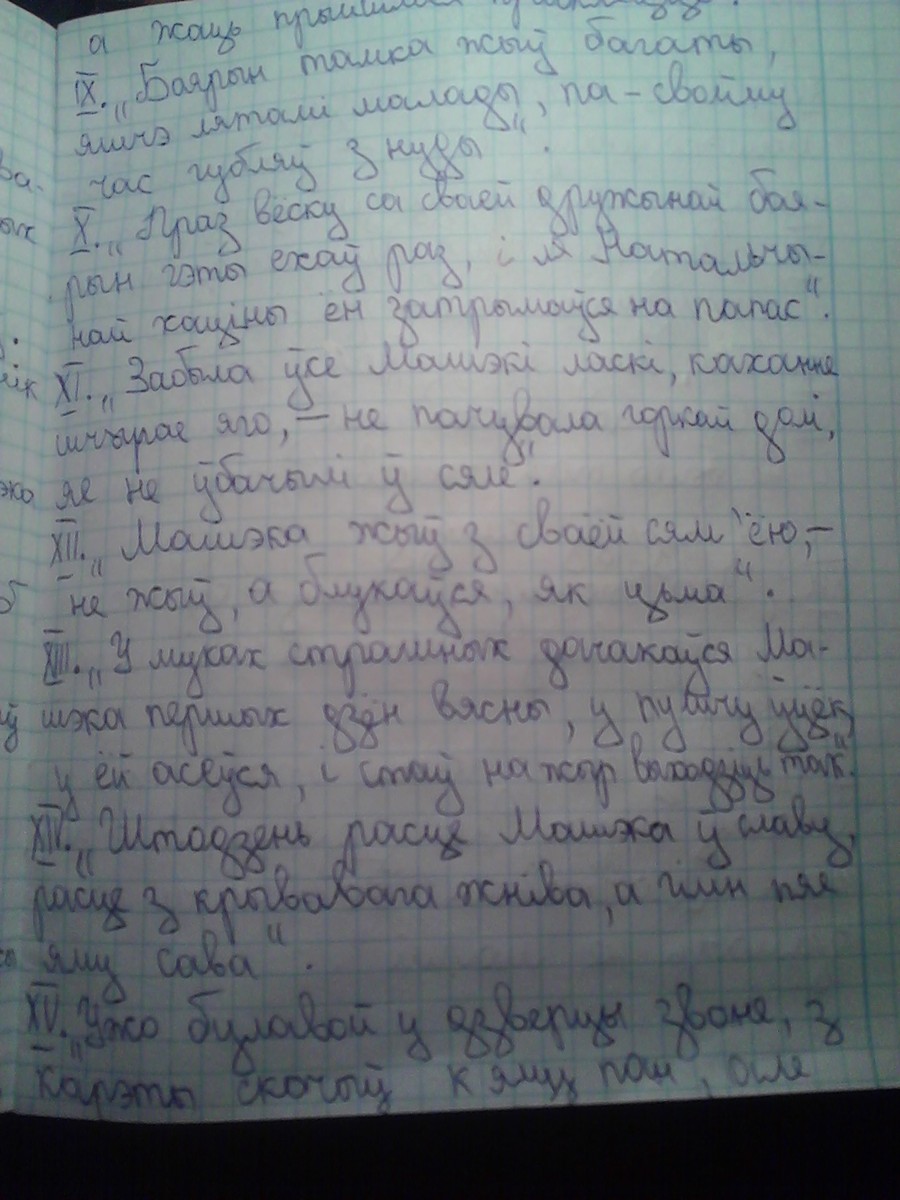 а жаць прыйшлося
IX. „Баярын тамка жыў багаты,
яшчэ лятамі малады, па-свойму
час губляў з нуды“.
X. „Праз вёску са сваёй дружынай бая-
рын гэты ехаў раз, і ля Натальчы-
най хаціны ён затрымаўся на папас“.
XI. „Забыла ўсе Машэкі ласкі, каханне
шчырае яго, – не пачувала горкай долі,
яе не ўбачылі ў сяле“.
XII. „Машэка жыў з сваёй сям'ёю, –
не жыў, а блукаўся, як цьма“.
XIII. „У муках страшных дачакаўся Ма-
шэка першых дзён вясны, у пушчу ўцёк,
у ёй асеўся, і стаў на жыр выходзіць так“.
XIV. „Штодзень расце Машэка ў славу,
расце з крывавага жніва, а гімн пяе
яму сава“.
XV. „Ужо булавой у дзверцы звоне, з
карэты скочыў к яму пан, але